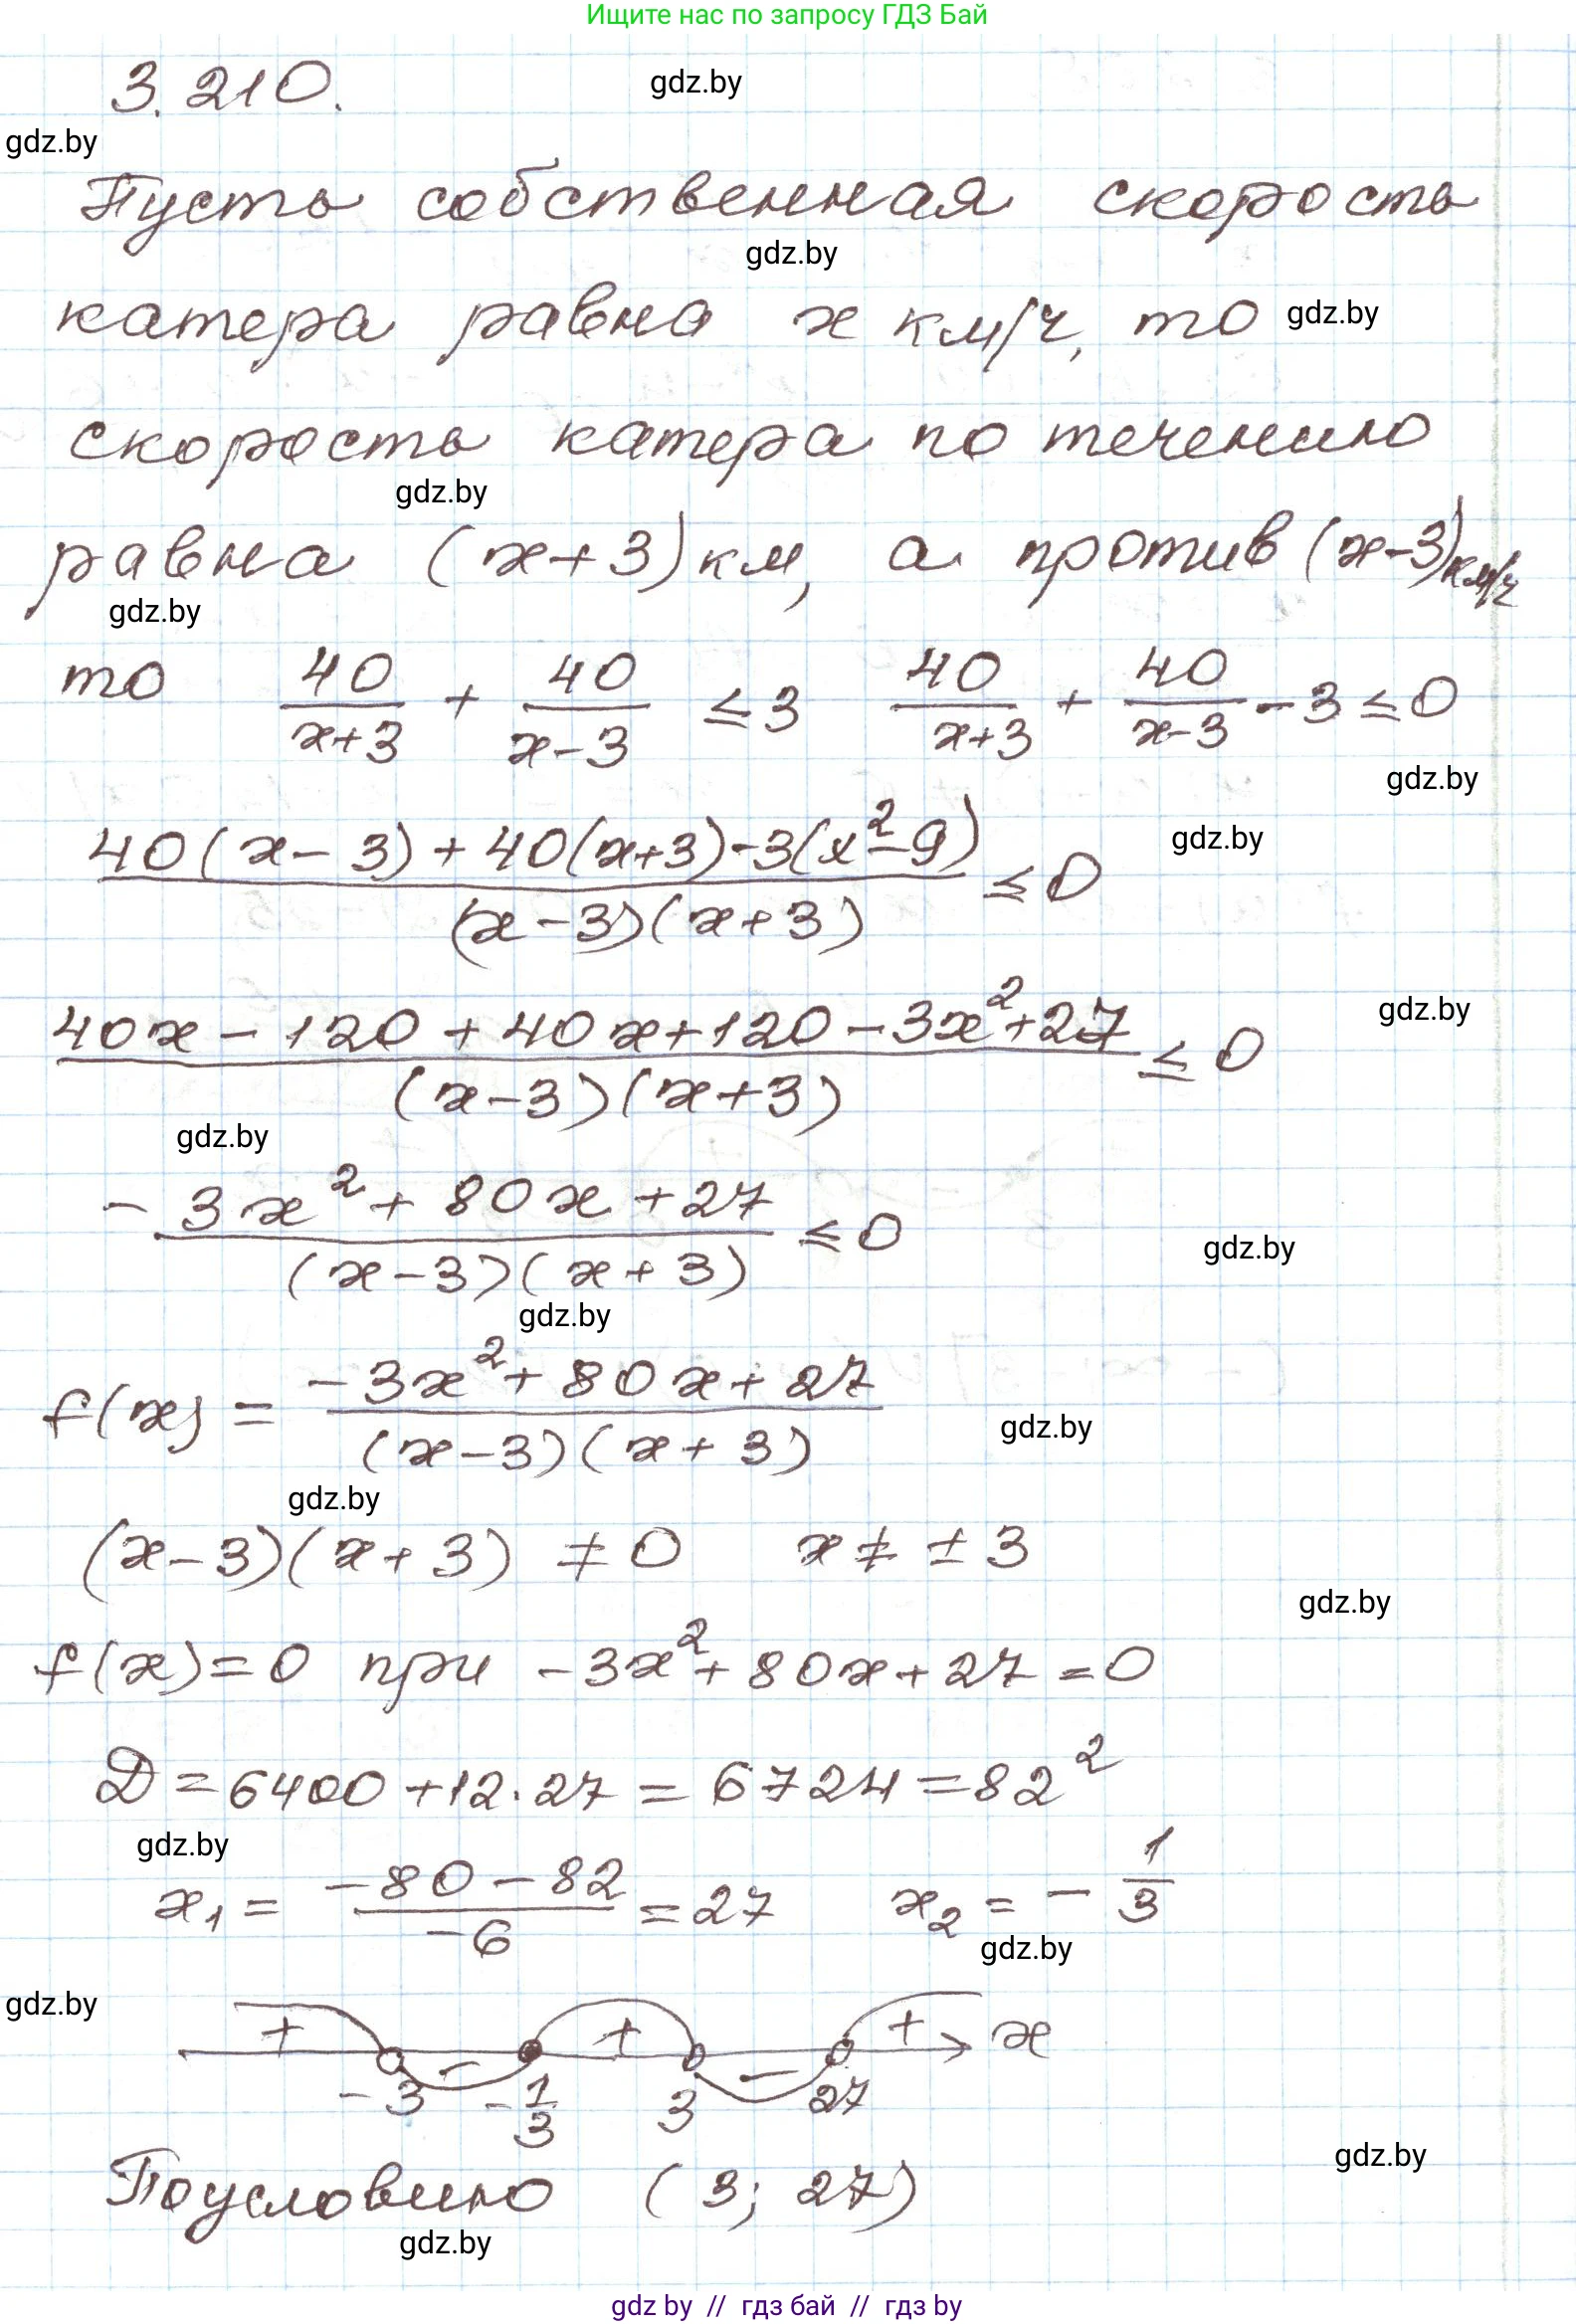 Ищите нас по запросу ГДЗ Бай
3.210.
gdz.by
gdz.by
Пусть собственная скорость
gdz.by
катера равна x км/ч, то
gdz.by
скорость катера по течению
gdz.by
равна (x+3) км, а против (x-3) км/ч
gdz.by
то 40/(x+3) + 40/(x-3) ≤ 3   40/(x+3) + 40/(x-3) - 3 ≤ 0
gdz.by
gdz.by
(40(x-3) + 40(x+3) - 3(x²-9))/((x-3)(x+3)) ≤ 0
gdz.by
(40x - 120 + 40x + 120 - 3x² + 27)/((x-3)(x+3)) ≤ 0
gdz.by
-(3x² + 80x + 27)/((x-3)(x+3)) ≤ 0
gdz.by
gdz.by
f(x) = (-3x² + 80x + 27)/((x-3)(x+3))
gdz.by
gdz.by
(x-3)(x+3) ≠ 0   x ≠ ±3
gdz.by
f(x) = 0 при -3x² + 80x + 27 = 0
D = 6400 + 12·27 = 6724 = 82²
gdz.by
x₁ = (-80-82)/(-6) = 27   x₂ = -1/3
gdz.by
gdz.by
+ - + - + x
-3 -1/3 3 27
gdz.by
По условию (3; 27)
gdz.by
gdz by // гдз бай // гдз by